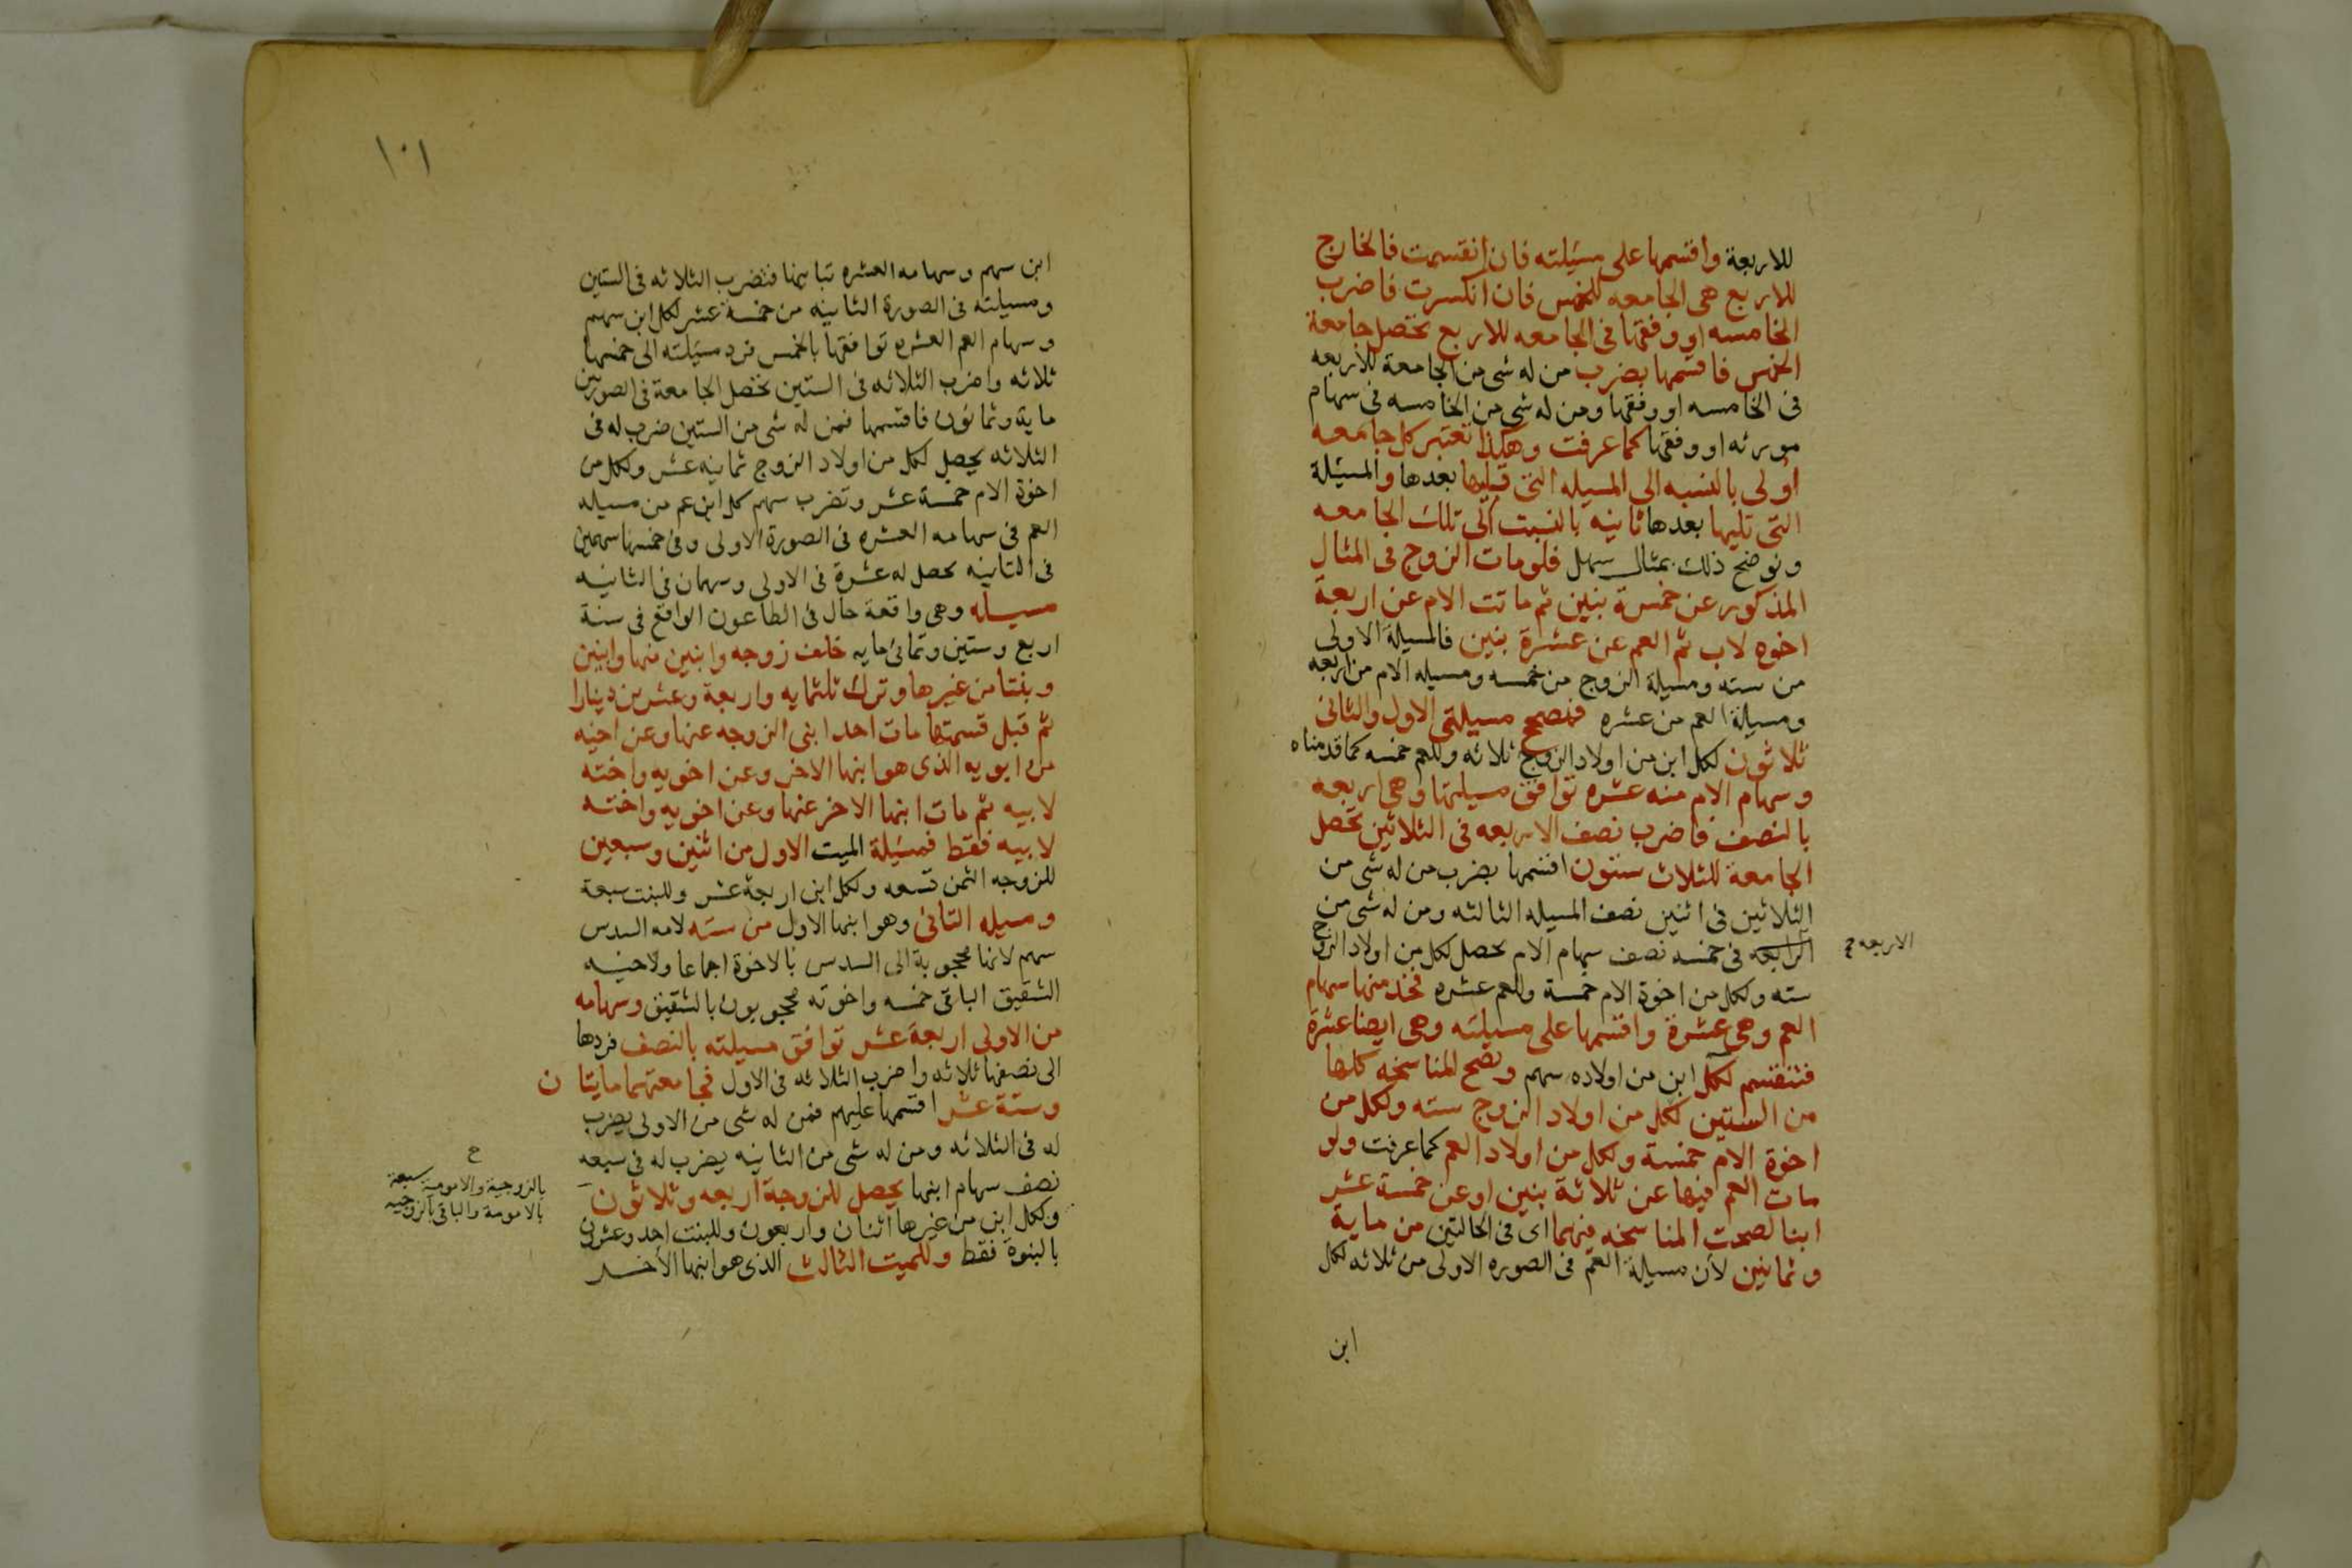 للاربعة واقسمها على مسئلته فان انقسمت فالخارج
للاربع هى الجامعه للخمس فان انكسرت فاضرب
الخامسه او وفقها فى الجامعه للاربع تحصل جامعة
الخمس فاقسمها بضرب من له شى من الجامعة للاربعه
فى الخامسه او وفقها ومن له شى من الخامسه فى سهام
مورثه او وفقها كما عرفت وهكذا تعتبر كل جامعه
اولى بالنسبه الى المسيله التى قبلها بعدها والمسئلة
التى تليها بعدها ثانيه بالنسبت الى تلك الجامعه
ونوضح ذلك بمثال سهل فلو مات الزوج فى المثال
المذكور عن خمسة بنين ثم ماتت الام عن اربعة
اخوه لاب ثم العم عن عشرة بنين فالمسيلة الاولى
من سته ومسيلة الزوج من خمسه ومسيله الام من اربعه
ومسيلة العم من عشره فتصح مسيلتى الاول والثانى
ثلاثون لكل ابن من اولاد الزوج ثلاثه وللعم خمسه كما قدمناه
وسهام الام منه عشره توافق مسيلتها وهى اربعه
بالنصف فاضرب نصف الاربعه فى الثلاثين تحصل
الجامعة للثلاث ستون اقسمها بضرب من له شى من
الثلاثين فى اثنين نصف المسيله الثالثه ومن له شى من
الرابعه فى خمسه نصف سهام الام يحصل لكل من اولاد الزوج
الاربعه ح
سته ولكل من اخوة الام خمسة وللعم عشره فخذ منها سهام
العم وهى عشرة واقسمها على مسيلته وهى ايضا عشرة
فتنقسم لكل ابن من اولاده سهم وتصح المناسخه كلها
من الستين لكل من اولاد الزوج سته ولكل من
اخوة الام خمسة ولكل من اولاد العم كما عرفت ولو
مات العم فيها عن ثلاثة بنين او عن خمسة عشر
ابنا لصحت المناسخه فيهما اى فى الحالتين من ماية
وثمانين لان مسيلة العم فى الصوره الاولى من ثلاثه لكل
ابن
١٠١
ابن سهم وسهامه العشره تباينها فتضرب الثلاثه فى الستين
ومسيلته فى الصورة الثانيه من خمسة عشر لكل ابن سهم
وسهام العم العشره توافقها بالخمس فرد مسيلته الى خمسها
ثلاثه واضرب الثلاثه فى الستين تحصل الجامعة فى الصورتين
ماية وثمانون فاقسمها فمن له شى من الستين ضرب له فى
الثلاثه يحصل لكل من اولاد الزوج ثمانيه عشر ولكل من
اخوة الام خمسة عشر وتضرب سهم كل ابن عم من مسيله
العم فى سهامه العشره فى الصورة الاولى وفى خمسها سهمين
فى الثانيه يحصل له عشرة فى الاولى وسهمان فى الثانيه
مسيله وهى واقعة حال فى الطاعون الواقع فى سنة
اربع وستين وثمانى مايه خلف زوجه وابنين منها وابنين
وبنتا من غيرها وترك ثلثمايه واربعة وعشرين دينارا
ثم قبل قسمتها مات احد ابنى الزوجه عنها وعن اخيه
من ابويه الذى هو ابنها الاخر وعن اخويه واخته
لابيه ثم مات ابنها الاخر عنها وعن اخويه واخته
لابيه فقط فمسيلة الميت الاول من اثنين وسبعين
للزوجه الثمن تسعه ولكل ابن اربعة عشر وللبنت سبعة
ومسيله الثانى وهو ابنها الاول من سته لامه السدس
سهم لانها محجوبة الى السدس بالاخوة اجماعا ولاخيه
الشقيق الباقى خمسه واخوته محجوبون بالشقيق وسهامه
من الاولى اربعة عشر توافق مسيلته بالنصف فردها
الى نصفها ثلاثه واضرب الثلاثه فى الاول فجامعتهما مايتان
وستة عشر اقسمها عليهم فمن له شى من الاولى يضرب
له فى الثلاثه ومن له شى من الثانيه يضرب له فى سبعه
نصف سهام ابنها يحصل للزوجة اربعه وثلاثون
ح
بالزوجية والامومة سبعة
بالامومة والباقى بالزوجيه
ولكل ابن من غيرها اثنان واربعون وللبنت احد وعشرون
بالبنوة فقط وللميت الثالث الذى هو ابنها الاخر